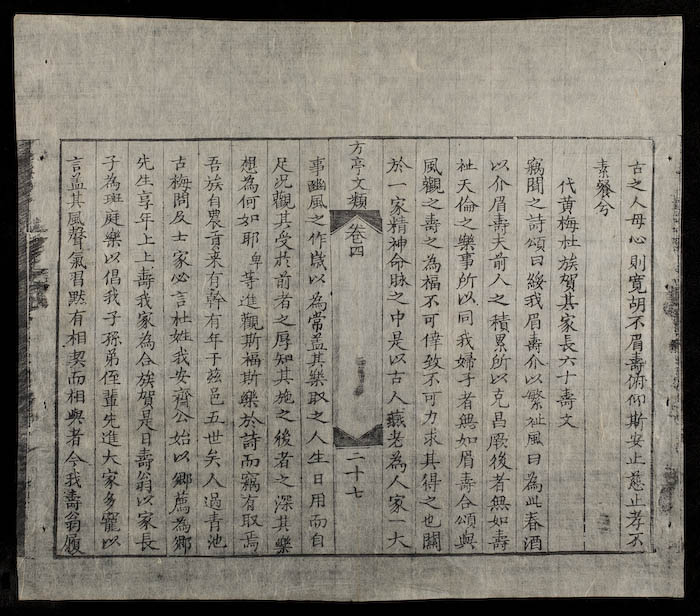 古之人母心則寛胡不眉壽俯仰斯安止慈止孝不
素餐兮
代黄梅杜族賀其家長六十壽文
竊聞之詩頌曰綏我眉壽介以繁祉風曰為此春酒
以介眉壽夫前人之積累所以克昌厥後者無如壽
祉天倫之樂事所以同我婦子者無如眉壽合頌與
風觀之壽之為福不可偉致不可力求其得之也關
於一家精神命脉之中是以古人燕老為人家一大
方亭文類 卷四 二十七
事豳風之作歲以為常盖其樂取之人生日用而自
足况觀其受於前者之厚知其施之後者之深其樂
想為何如耶卑等進觀斯福斯樂於詩而竊有取焉
吾族自農貢来有幹有年于兹邑五世矣人過青池
古梅問及士家必言杜姓我安齊公始以鄉薦為鄉
先生享年上上壽我家為合族賀是日壽翁以家長
子為斑庭樂以倡我子孫弟侄輩先進大家多寵以
言盖其風聲氣習黙有相契而相與者今我壽翁履